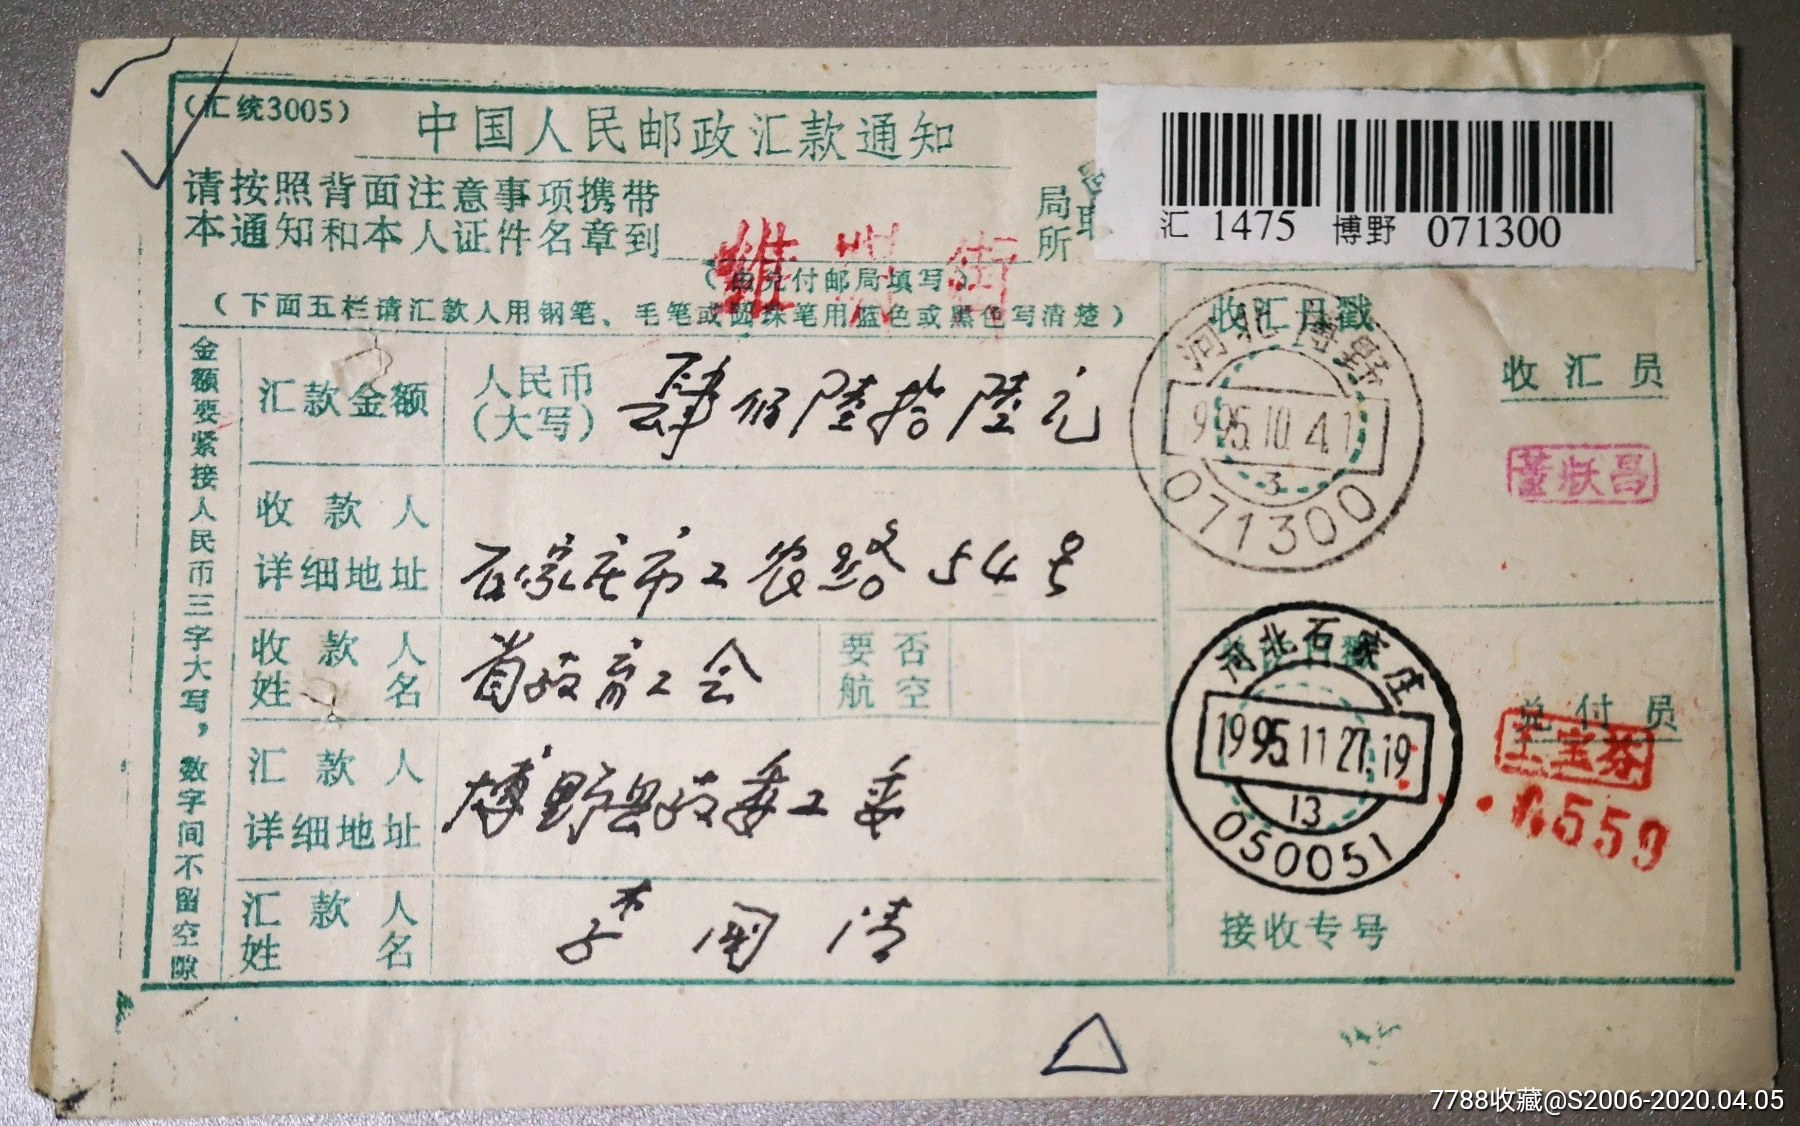 (汇统3005)
中国人民邮政汇款通知
汇 1475 博野 071300
请按照背面注意事项携带
本通知和本人证件名章到
维 街
局
所
(由兑付邮局填写)
(下面五栏请汇款人用钢笔、毛笔或圆珠笔用蓝色或黑色写清楚)
金额要紧接人民币三字大写，数字间不留空隙
汇款金额
人民币
(大写)
肆佰陆拾陆元
收款人
详细地址
石家庄市工农路54号
收款人
姓名
省政育工会
要否
航空
汇款人
详细地址
博野县政委工委
汇款人
姓名
李国清
收汇日戳
河北博野
1995.10.4.1
3
071300
收汇员
河北石家庄
1995.11.27.19
13
050051
兑付员
王宝芬
6559
接收专号
7788收藏@S2006-2020.04.05